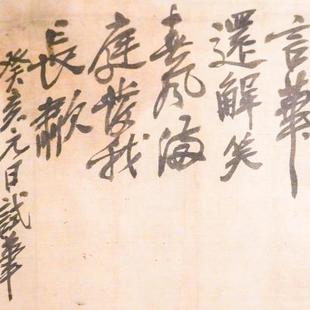 言華
還解笑
春風滿
庭發我
長歗
癸亥元日試筆